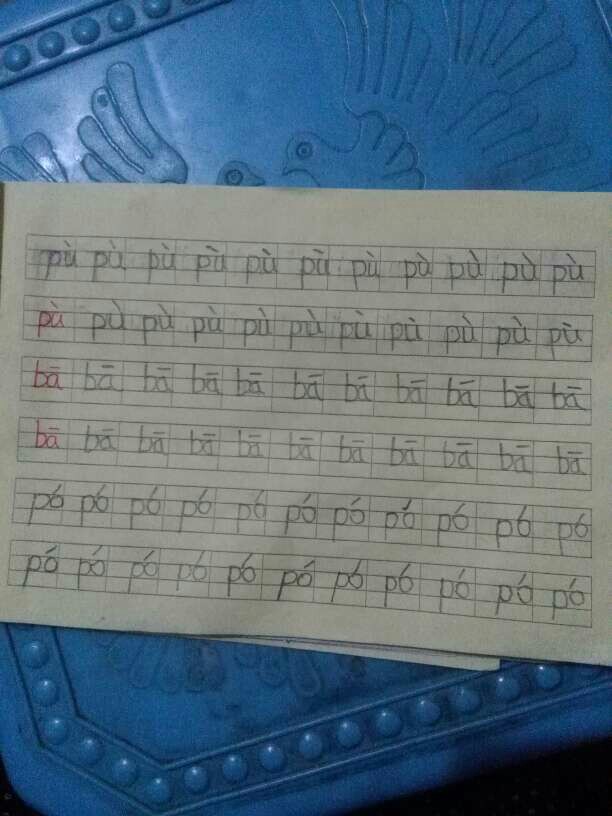 pù pù pù pù pù pù pù pù pù pù pù
pù pù pù pù pù pù pù pù pù pù pù
bā bā bā bā bā bā bā bā bā bā bā
bā bā bā bā bā bā bā bā bā bā bā
pó pó pó pó pó pó pó pó pó pó pó
pó pó pó pó pó pó pó pó pó pó pó